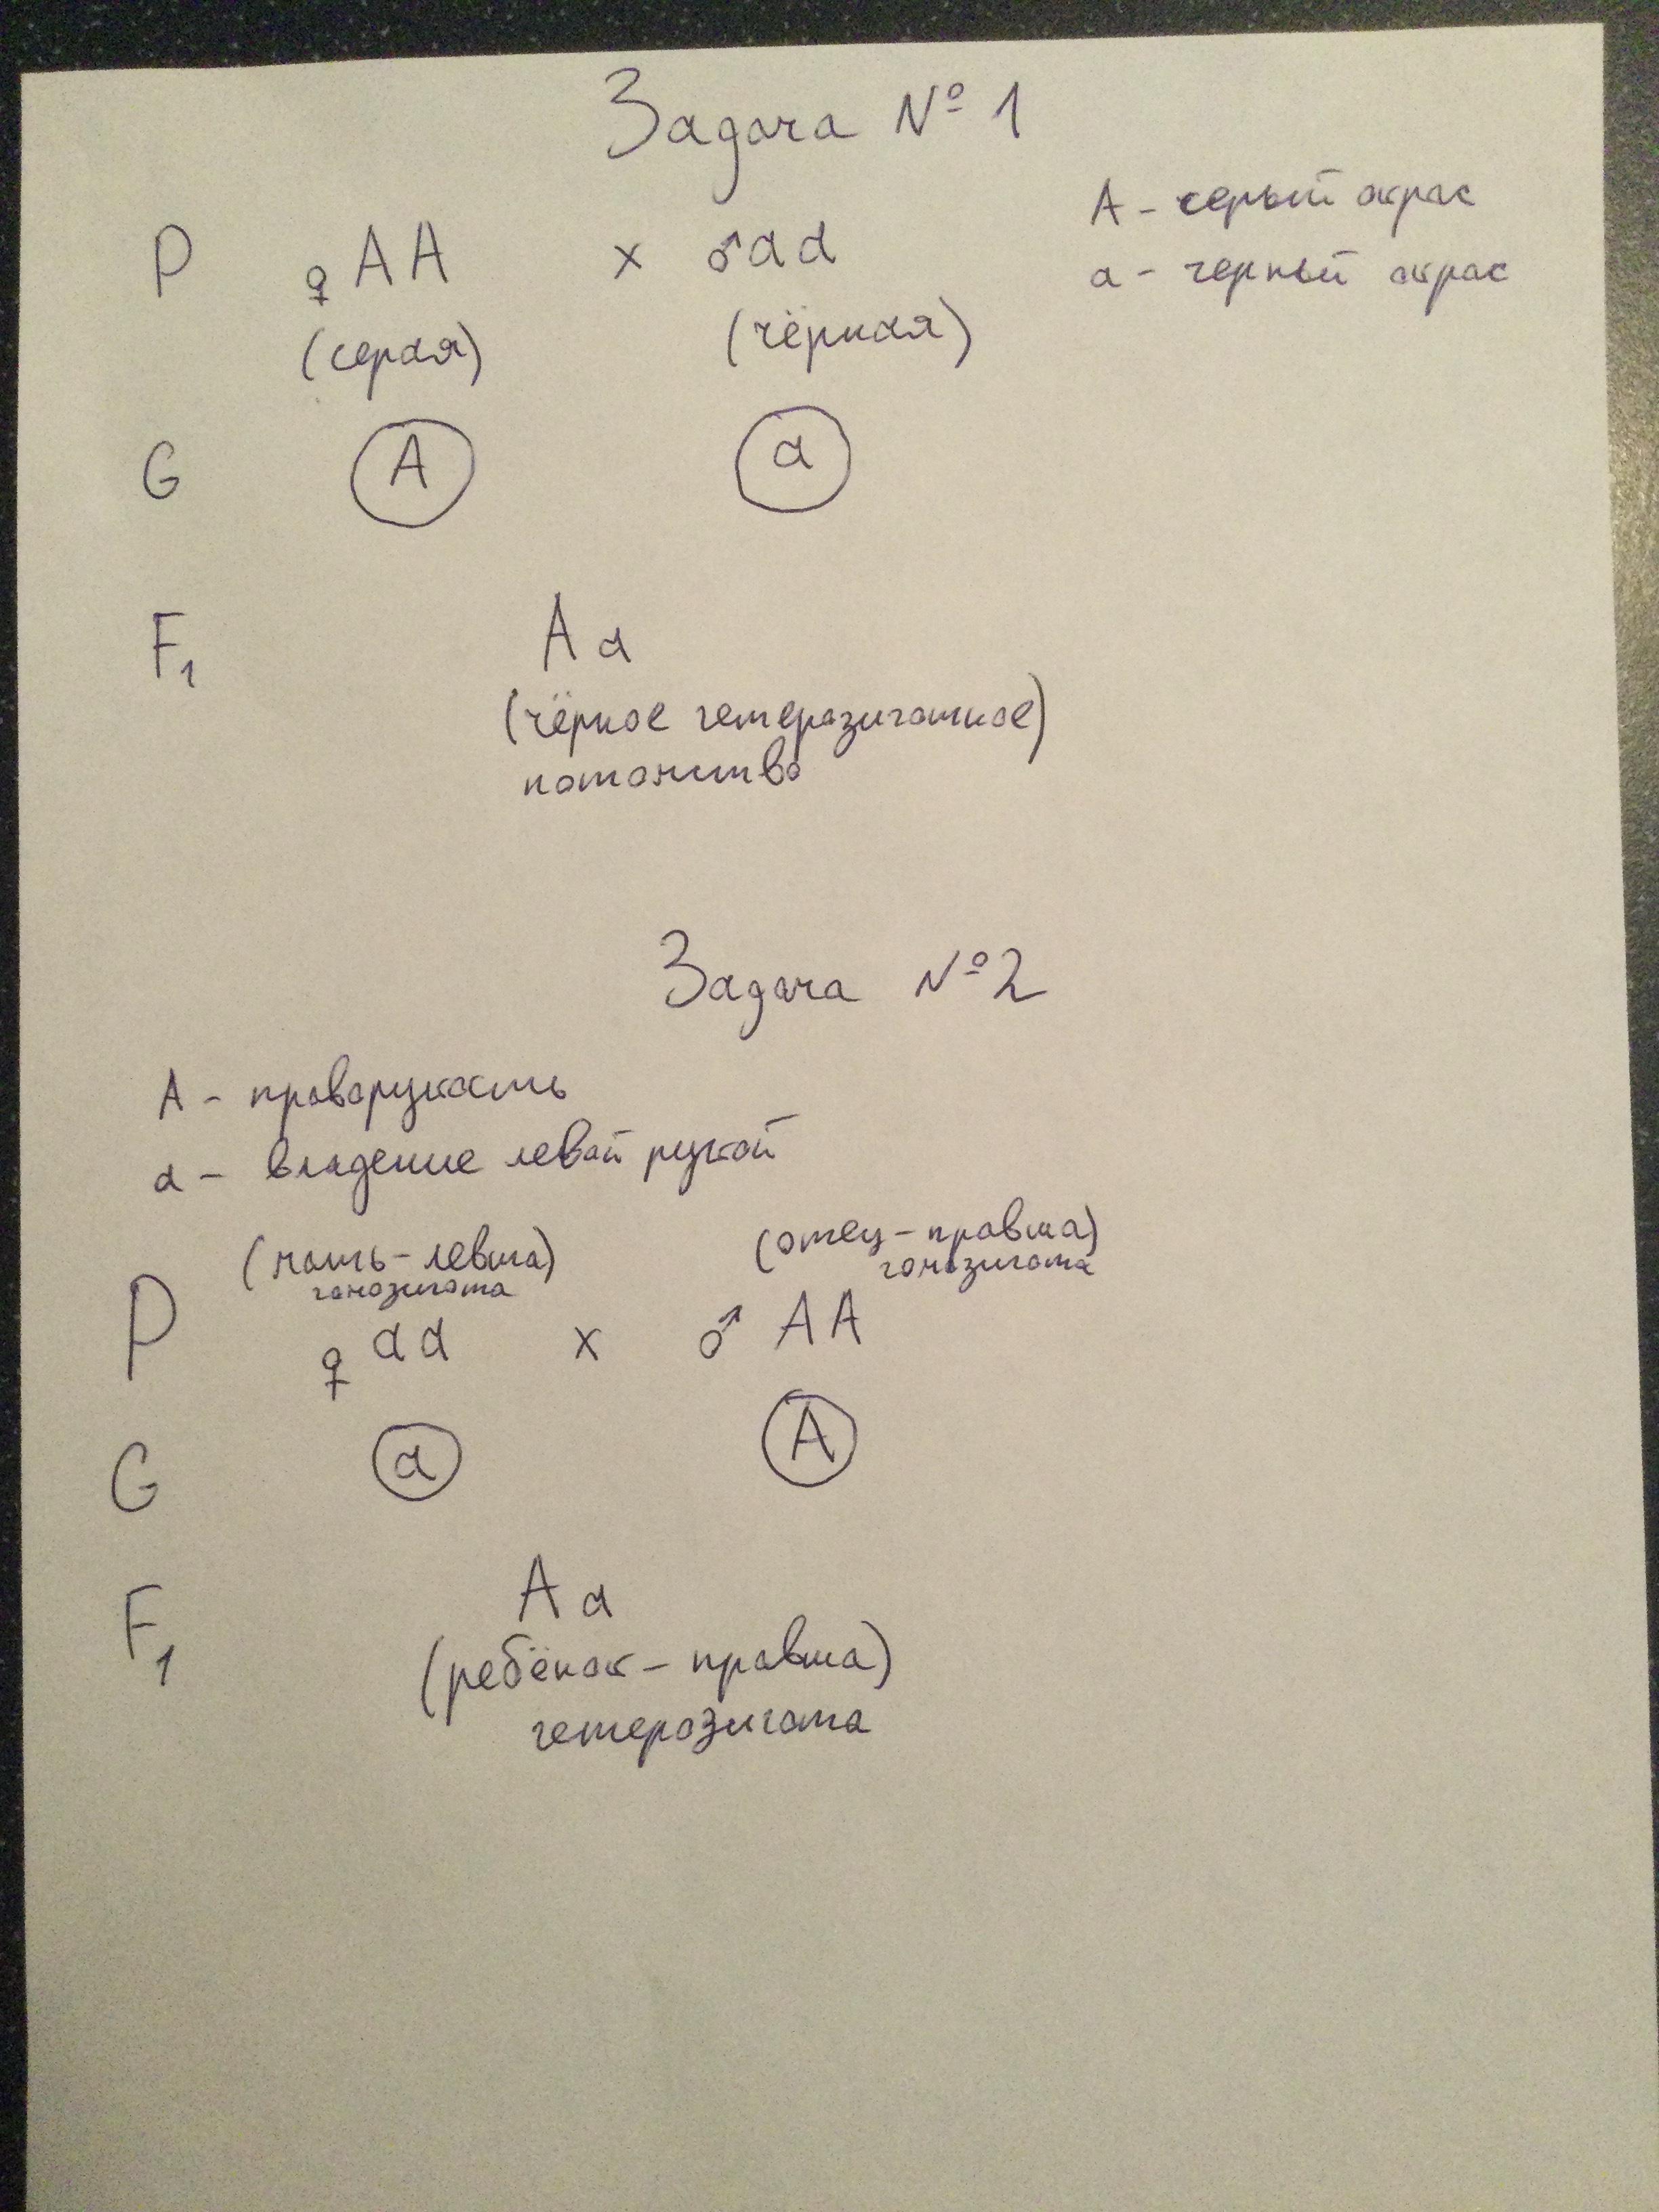 Задача № 1
А - серый окрас
а - черный окрас
P ♀ АА х ♂ аа
(серая) (чёрная)
G А а
F1 Аа
(чёрное гетерозиготное)
потомство
Задача №2
А - праворукость
а - владение левой рукой
(мать - левша) (отец - правша)
гомозигота гомозигота
P ♀ аа х ♂ АА
G а А
F1 Аа
(ребёнок - правша)
гетерозигота